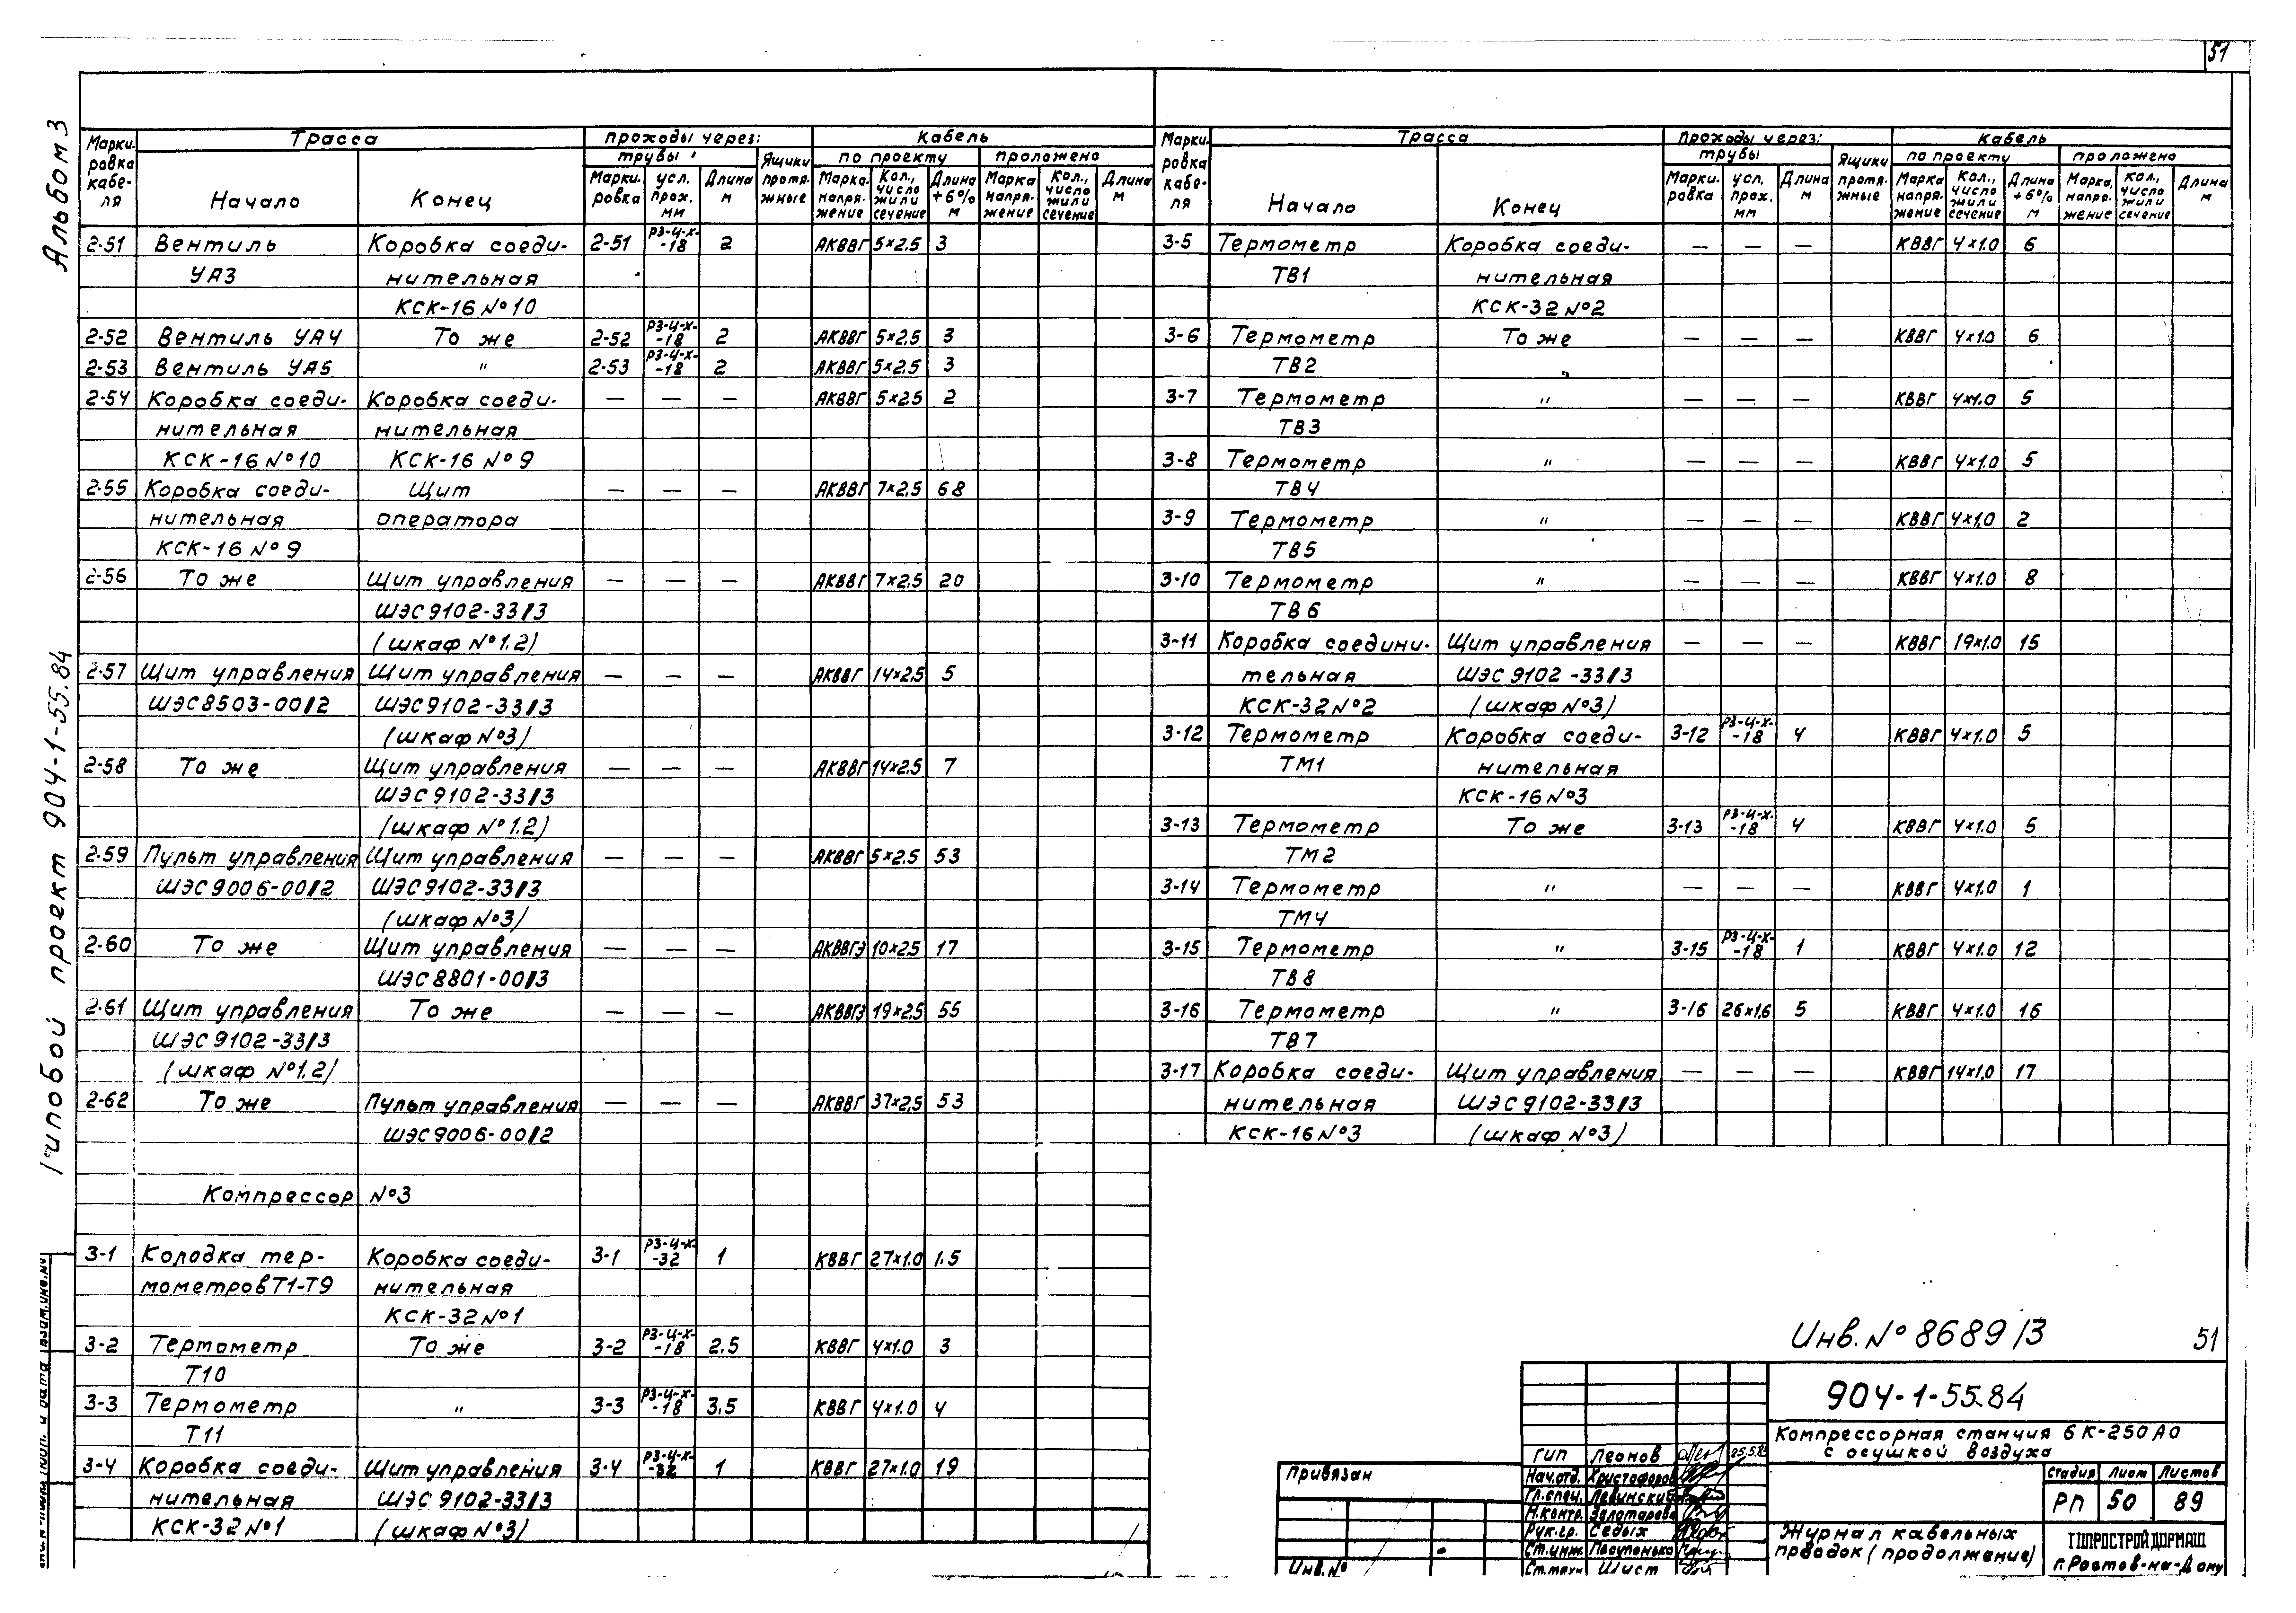 51
Альбом 3
Типовой проект 904-1-55.84
Марки-ровка кабе-ля | Трасса | проходы через: | Кабель
трубы | Ящики протя-жные | по проекту | проложено
Начало | Конец | Марки-ровка | усл. прох. мм | Длина м | Марка напря-жение | Кол., число жил и сечение | Длина +6% м | Марка напря-жение | Кол., число жил и сечение | Длина м
2-51 Вентиль Коробка соеди- 2-51 РЗ-Ц-Х-18 2 АКВВГ 5×2.5 3
УА3 нительная
КСК-16 №10
2-52 Вентиль УА4 То же 2-52 РЗ-Ц-Х-18 2 АКВВГ 5×2.5 3
2-53 Вентиль УА5 " 2-53 РЗ-Ц-Х-18 2 АКВВГ 5×2.5 3
2-54 Коробка соеди- Коробка соеди- — — — АКВВГ 5×2.5 2
нительная нительная
КСК-16 №10 КСК-16 №9
2-55 Коробка соеди- Щит — — — АКВВГ 7×2.5 68
нительная оператора
КСК-16 №9
2-56 То же Щит управления — — — АКВВГ 7×2.5 20
ШЭС9102-33/3
(шкаф №1.2)
2-57 Щит управления Щит управления — — — АКВВГ 14×2.5 5
ШЭС8503-00/2 ШЭС9102-33/3
(шкаф №3)
2-58 То же Щит управления — — — АКВВГ 14×2.5 7
ШЭС9102-33/3
(шкаф №1.2)
2-59 Пульт управления Щит управления — — — АКВВГ 5×2.5 53
ШЭС9006-00/2 ШЭС9102-33/3
(шкаф №3)
2-60 То же Щит управления — — — АКВВГЭ 10×2.5 17
ШЭС8801-00/3
2-61 Щит управления То же — — — АКВВГЭ 19×2.5 55
ШЭС9102-33/3
(шкаф №1.2)
2-62 То же Пульт управления — — — АКВВГ 37×2.5 53
ШЭС9006-00/2
Компрессор №3
3-1 Колодка тер- Коробка соеди- 3-1 РЗ-Ц-Х-32 1 КВВГ 27×1.0 1.5
мометров Т1-Т9 нительная
КСК-32 №1
3-2 Термометр То же 3-2 РЗ-Ц-Х-18 2.5 КВВГ 4×1.0 3
Т10
3-3 Термометр " 3-3 РЗ-Ц-Х-18 3.5 КВВГ 4×1.0 4
Т11
3-4 Коробка соеди- Щит управления 3-4 РЗ-Ц-Х-32 1 КВВГ 27×1.0 19
нительная ШЭС 9102-33/3
КСК-32 №1 (шкаф №3)
Марки-ровка кабе-ля | Трасса | проходы через: | Кабель
трубы | Ящики протя-жные | по проекту | проложено
Начало | Конец | Марки-ровка | усл. прох. мм | Длина м | Марка напря-жение | Кол., число жил и сечение | Длина +6% м | Марка, напря-жение | Кол., число жил и сечение | Длина м
3-5 Термометр Коробка соеди- — — — КВВГ 4×1.0 6
ТВ1 нительная
КСК-32 №2
3-6 Термометр То же — — — КВВГ 4×1.0 6
ТВ2
3-7 Термометр " — — — КВВГ 4×1.0 5
ТВ3
3-8 Термометр " — — — КВВГ 4×1.0 5
ТВ4
3-9 Термометр " — — — КВВГ 4×1.0 2
ТВ5
3-10 Термометр " — — — КВВГ 4×1.0 8
ТВ6
3-11 Коробка соедини- Щит управления — — — КВВГ 19×1.0 15
тельная ШЭС 9102-33/3
КСК-32 №2 (шкаф №3)
3-12 Термометр Коробка соеди- 3-12 РЗ-Ц-Х-18 4 КВВГ 4×1.0 5
ТМ1 нительная
КСК-16 №3
3-13 Термометр То же 3-13 РЗ-Ц-Х-18 4 КВВГ 4×1.0 5
ТМ2
3-14 Термометр " — — — КВВГ 4×1.0 1
ТМ4
3-15 Термометр " 3-15 РЗ-Ц-Х-18 1 КВВГ 4×1.0 12
ТВ8
3-16 Термометр " 3-16 26×1,6 5 КВВГ 4×1.0 16
ТВ7
3-17 Коробка соеди- Щит управления — — — КВВГ 14×1,0 17
нительная ШЭС 9102-33/3
КСК-16 №3 (шкаф №3)
Инв. № 8689/3 51
904-1-55.84
Компрессорная станция 6К-250АО
с осушкой воздуха
Гип Леонов
Нач.отд. Христофоров
Гл.спец. Левинский
Н.контр. Золотарева
Рук.гр. Седых
Ст.инж. Посупонько
Ст.техн Шист
Привязан
Инв.№
Стадия Лист Листов
РП 50 89
Журнал кабельных
прводок (продолжение)
ГИПРОСТРОЙДОРМАШ
г.Ростов-на-Дону
Взам.инв.№
Подп. и дата